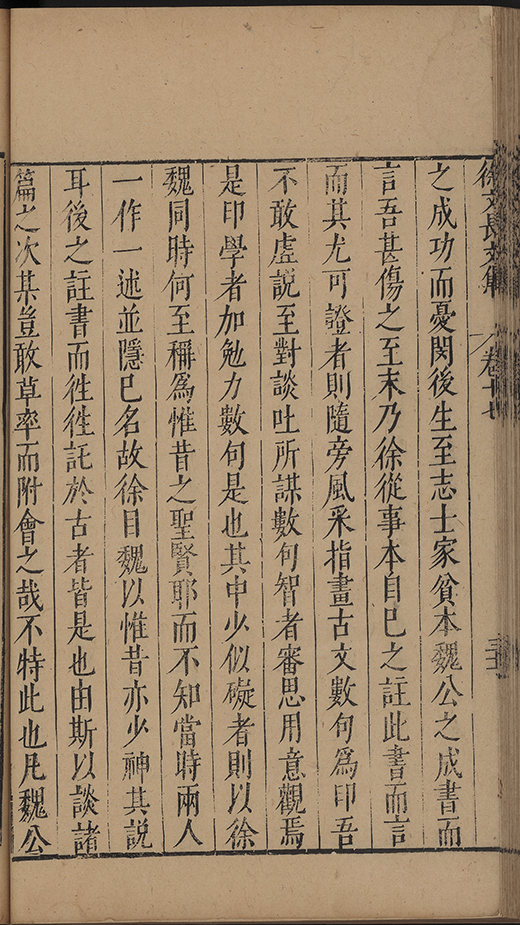 徐文長文集 卷十七
之成功而憂閔後生至志士家貧本魏公之成書而
言吾甚傷之至末乃徐從事本自已之註此書而言
而其尤可證者則隨旁風采指畫古文數句爲印吾
不敢虛說至對談吐所謀數句智者審思用意觀焉
是印學者加勉力數句是也其中少似礙者則以徐
魏同時何至稱爲惟昔之聖賢耶而不知當時兩人
一作一述並隱已名故徐目魏以惟昔亦少神其說
耳後之註書而徃徃託於古者皆是也由斯以談諸
篇之次某豈敢草率而附會之哉不特此也凡魏公